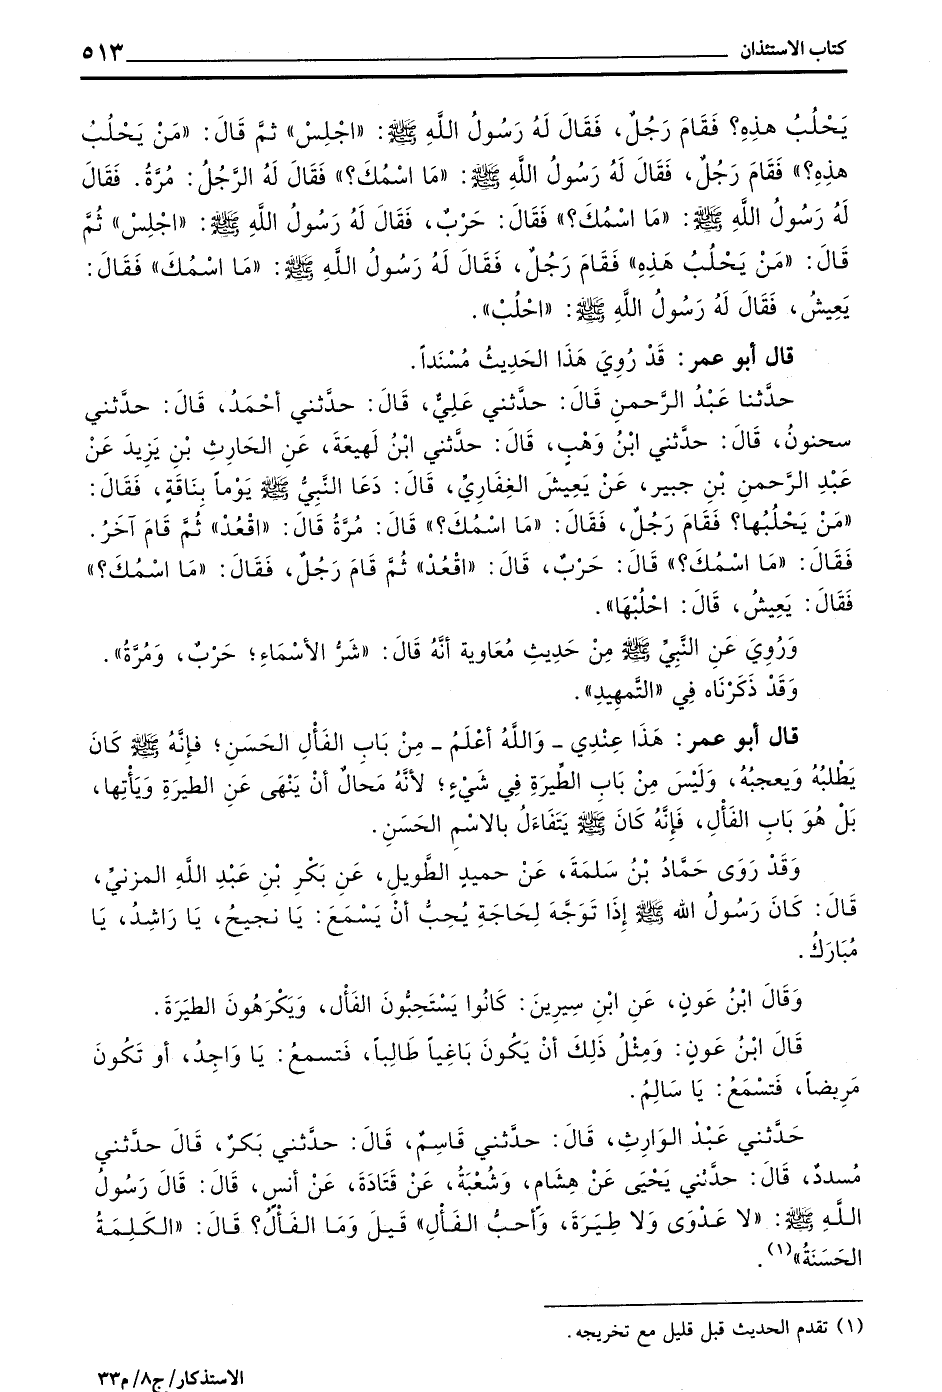 كتاب الاستئذان ٥١٣
يَحْلُبُ هذِهِ؟ فَقَامَ رَجُلٌ، فَقَالَ لَهُ رَسُولُ اللَّهِ ﷺ: «اجْلِسْ» ثمَّ قَالَ: «مَنْ يَحْلُبُ
هذِهِ؟» فَقَامَ رَجُلٌ، فَقَالَ لَهُ رَسُولُ اللَّهِ ﷺ: «مَا اسْمُكَ؟» فَقَالَ لَهُ الرَّجُلُ: مُرَّةُ. فَقَالَ
لَهُ رَسُولُ اللَّهِ ﷺ: «مَا اسْمُكَ؟» فَقَالَ: حَرْبٌ، فَقَالَ لَهُ رَسُولُ اللَّهِ ﷺ: «اجْلِسْ» ثُمَّ
قَالَ: «مَنْ يَحْلُبُ هَذِهِ» فَقَامَ رَجُلٌ، فَقَالَ لَهُ رَسُولُ اللَّهِ ﷺ: «مَا اسْمُكَ» فَقَالَ:
يَعِيشُ، فَقَالَ لَهُ رَسُولُ اللَّهِ ﷺ: «احْلُبْ».
قال أبو عمر: قَدْ رُوِيَ هَذَا الحَدِيثُ مُسْنَداً.
حدَّثنا عَبْدُ الرَّحمنِ قَالَ: حدَّثني عَلِيٌّ، قَالَ: حدَّثني أحْمَدُ، قَالَ: حدَّثني
سحنونُ، قَالَ: حدَّثني ابْنُ وَهْبٍ، قَالَ: حدَّثني ابْنُ لَهِيعَةَ، عَنِ الحَارِثِ بْنِ يَزِيدَ عَنْ
عَبْدِ الرَّحمنِ بْنِ جبير، عَنْ يَعِيشَ الغِفَاريِّ، قَالَ: دَعَا النَّبِيُّ ﷺ يَوْماً بِنَاقَةٍ، فَقَالَ:
«مَنْ يَحْلُبُها؟ فَقَامَ رَجُلٌ، فَقَالَ: «مَا اسْمُكَ؟» قَالَ: مُرَّةُ قَالَ: «اقْعُدْ» ثُمَّ قَامَ آخَرُ.
فَقَالَ: «مَا اسْمُكَ؟» قَالَ: حَرْبٌ، قَالَ: «اقْعُدْ» ثُمَّ قَامَ رَجُلٌ، فَقَالَ: «مَا اسْمُكَ؟»
فَقَالَ: يَعِيشُ، قَالَ: احْلُبْهَا».
وَرُوِيَ عَنِ النَّبِيِّ ﷺ مِنْ حَدِيثِ مُعَاوية أنَّهُ قَالَ: «شَرُّ الأسْمَاءِ؛ حَرْبٌ، وَمُرَّةُ».
وَقَدْ ذَكَرْنَاه فِي «التَّمهِيدِ».
قال أبو عمر: هَذَا عِنْدِي - وَاللَّهُ أعْلَمُ - مِنْ بَابِ الفَألِ الحَسَنِ؛ فإنَّهُ ﷺ كَانَ
يَطْلبُهُ وَيعجبُهُ، وَلَيْسَ مِنْ بَابِ الطِّيَرةِ فِي شَيْءٍ؛ لأنَّهُ مَحالٌ أنْ يَنْهَى عَنِ الطيرَةِ وَيَأْتِها،
بَلْ هُوَ بَابِ الفَألِ، فَإنَّهُ كَانَ ﷺ يَتَفَاءَلُ بالاسْمِ الحَسَنِ.
وَقَدْ رَوَى حَمَّادُ بْنُ سَلمَةَ، عَنْ حميدٍ الطَّويلِ، عَنِ بَكْرِ بْنِ عَبْدِ اللَّهِ المزنيِّ،
قَالَ: كَانَ رَسُولُ الله ﷺ إذَا تَوَجَّهَ لِحَاجَةٍ يُحِبُّ أنْ يَسْمَعَ: يَا نجيحُ، يَا رَاشِدُ، يَا
مُبَارَكُ.
وَقَالَ ابْنُ عَونٍ، عَنِ ابْنِ سِيرِينَ: كَانُوا يَسْتَحِبُّونَ الفَأْلَ، وَيَكْرَهُونَ الطيَرَةَ.
قَالَ ابْنُ عَونٍ: وَمِثْلُ ذَلِكَ أنْ يَكُونَ بَاغِياً طَالِباً، فَتسمعُ: يَا وَاجِدُ، أو تَكُونَ
مَرِيضاً، فَتَسْمَعُ: يَا سَالِمُ.
حَدَّثني عَبْدُ الوَارِثِ، قَالَ: حدَّثني قَاسِمٌ، قَالَ: حدَّثني بَكرٌ، قَالَ حدَّثني
مُسددٌ، قَالَ: حدَّثني يَحْيَى عَنْ هِشَامٍ، وَشُعْبَةُ، عَنْ قَتَادَةَ، عَنْ أنسٍ، قَالَ: قَالَ رَسُولُ
اللَّهِ ﷺ: «لا عَدْوَى وَلا طِيَرَةَ، وَأحبُّ الفَألِ» قِيلَ وَمَا الفَألُ؟ قَالَ: «الكَلِمَةُ
الحَسَنَةُ»(١).
(١) تقدم الحديث قبل قليل مع تخريجه.
الاستذكار/ ج٨/ م٣٣